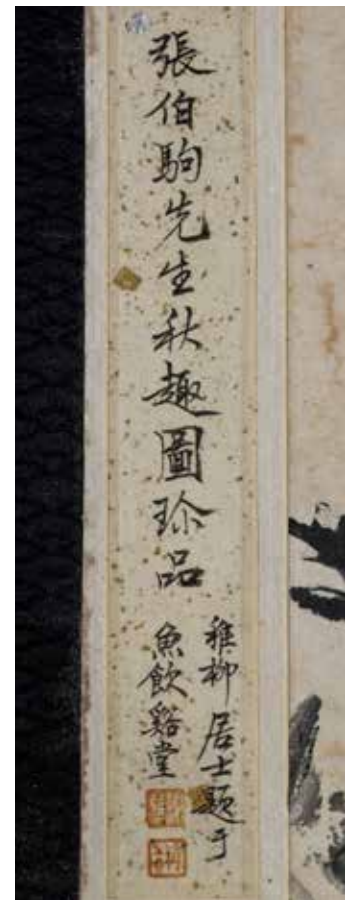 張伯駒先生秋趣圖珍品
稚柳居士題于
魚飲谿堂